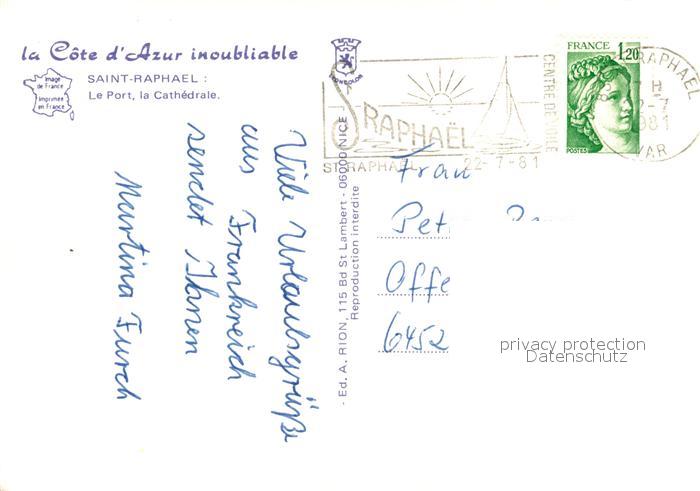 la Côte d'Azur inoubliable
SAINT-RAPHAEL :
Le Port, la Cathédrale.
Image
de France
Imprimée
en France
Viele Urlaubsgrüße
aus Frankreich
sendet Ihnen
Martina Furch
- Ed. A. RION, 115 Bd St Lambert - 06000 NICE
Reproduction interdite
RAPHAËL
CENTRE DE VOILE
ST RAPHAEL 22-7-81
FRANCE
1,20
POSTES
RAPHAEL
VAR
Frau
Pet
Offe
6452
privacy protection
Datenschutz